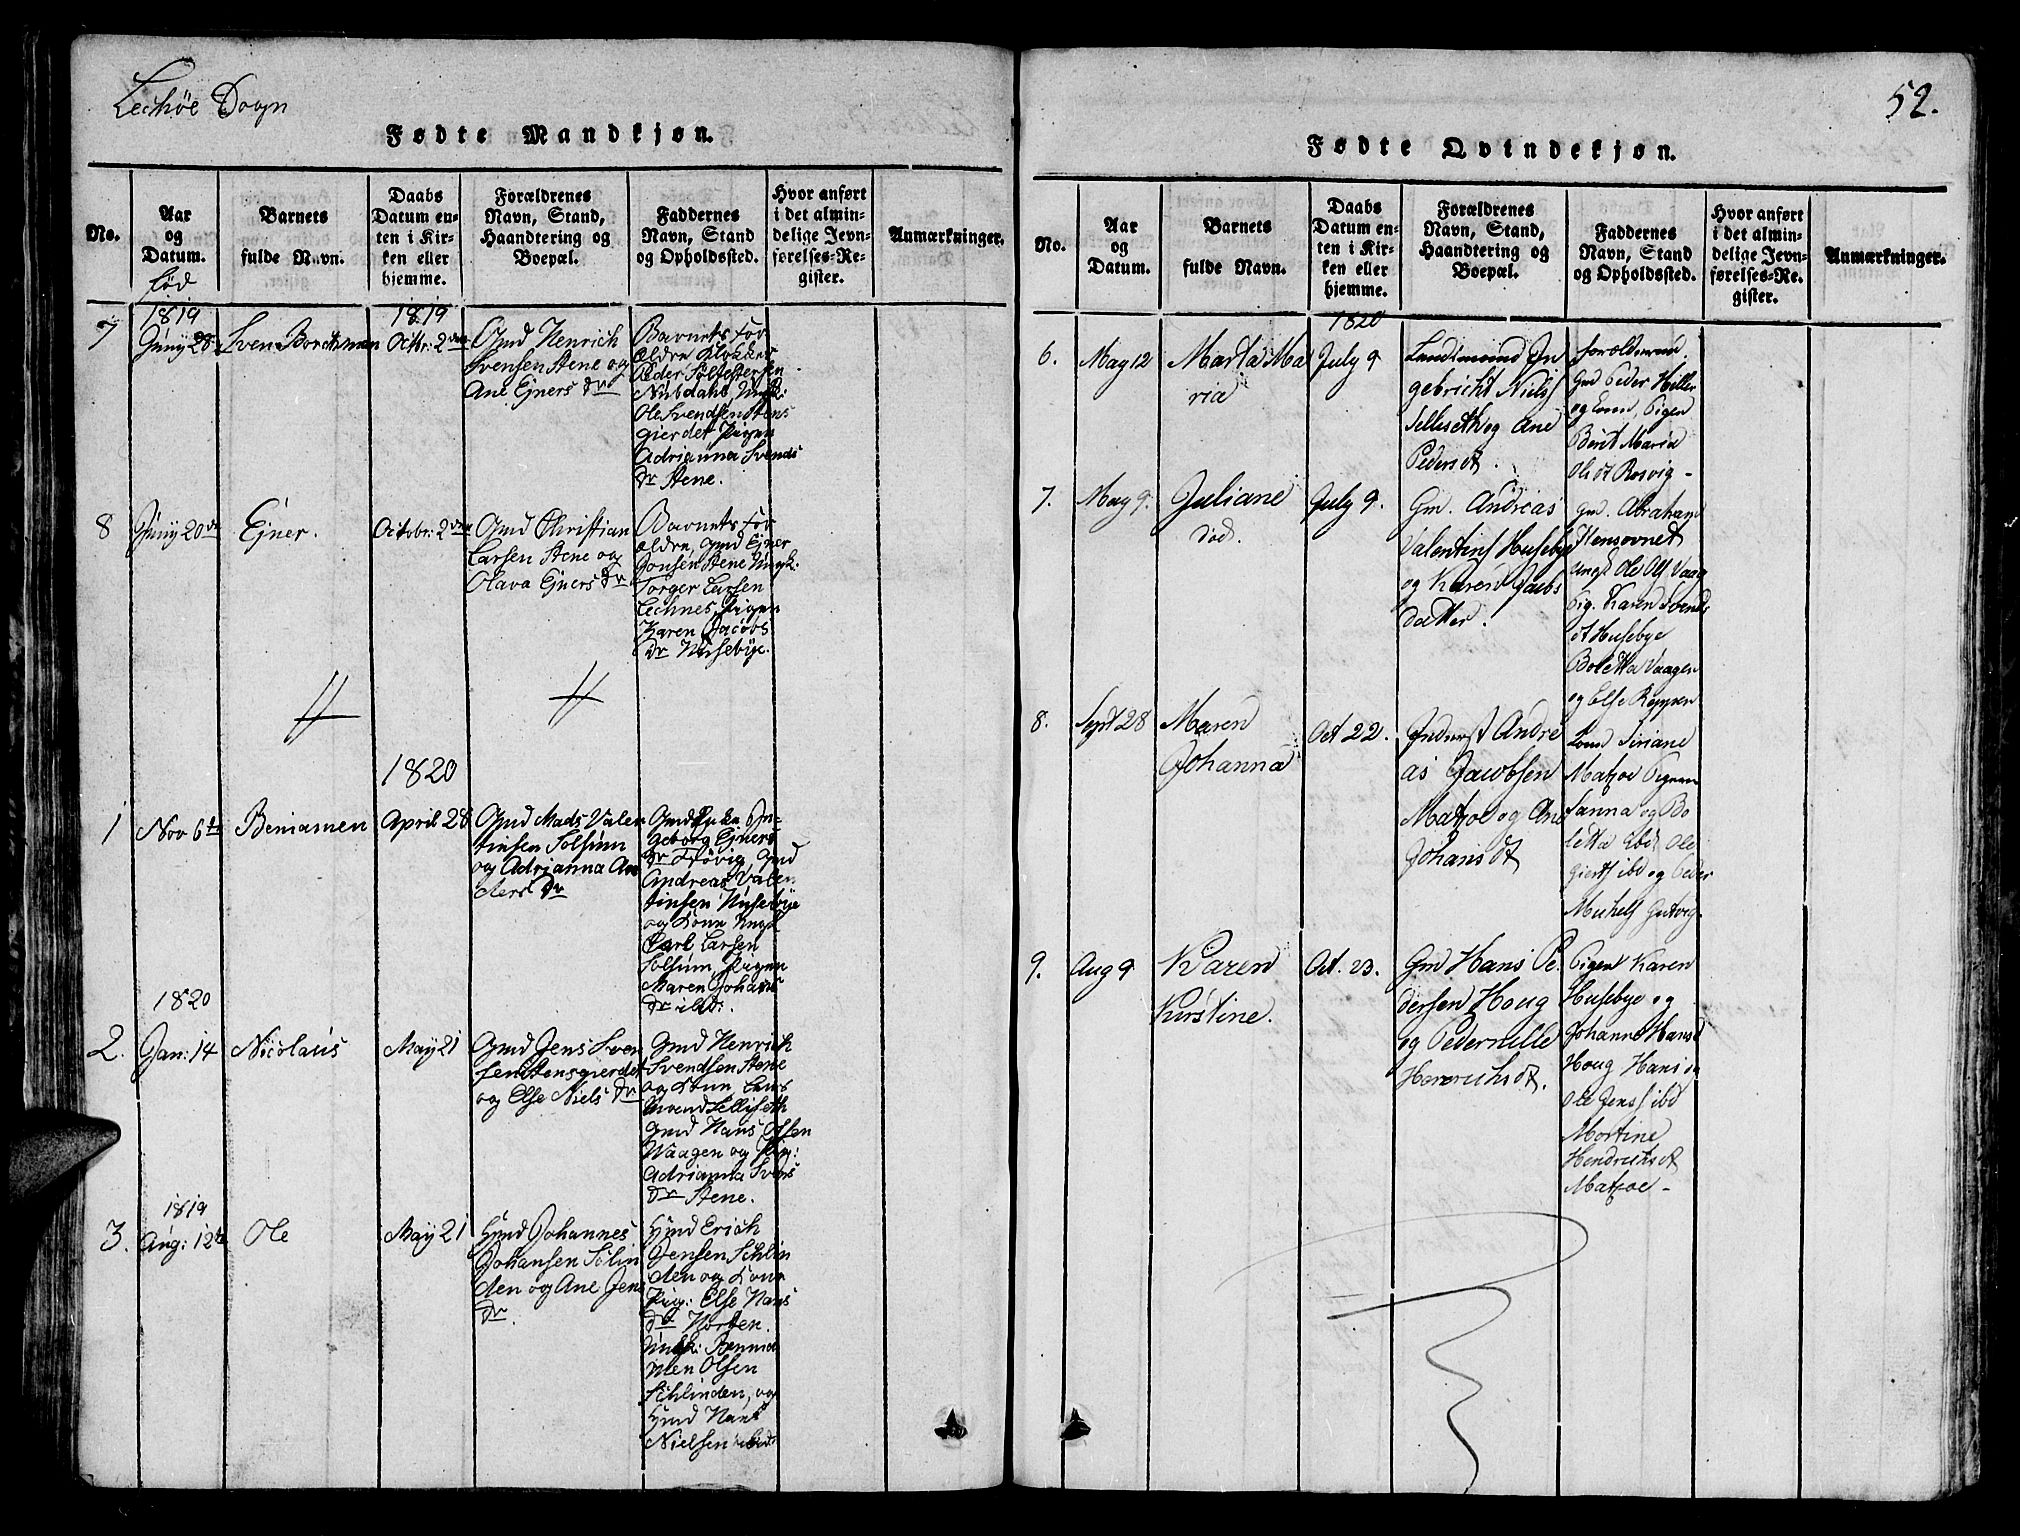 Lechøe Sogn
Fødte Mandkjøn.
No.
Aar
og
Datum.
fød
Barnets
fulde Navn.
Daabs
Datum en-
ten i Kir-
ken eller
hjemme.
Forældrenes
Navn, Stand,
Haandtering og
Boepæl.
Faddernes
Navn, Stand
og Opholdssted.
Hvor anført
i det almin-
delige Jevn-
førelses-Re-
gister.
Anmærkninger.
7
1819
Juny 28
Sven
1819
Octbr: 2den
Gmd Henrich
Svensen Stene og
Ane Ejners Dr
Barnets For
ældre Klokker
Peder
Nübdahl, Ungk:
Ole Svendsen Stens
gierdet Pigen
Adrianna Svends
Dr Stene.
8
Juny 20de
Ejner.
Octobr: 2den
Gmd Christian
Larsen Stene og
Olava Ejners Dr
Barnets For
ældre, Gmd Ejner
Jonsen Stene Ungk:
Torger Larsen
Lechnes, Pigen
Karen Jacobs
Dr Husebye.
1820
1
Nov 6te
Beniamen
April 28
Gmd Mads Valen
tinsen Solsüm
og Adrianna An
ders Dr
Gmd In-
geborg Ejners
Dr Gmd
Andreas Valen
tinsen Husebye
og Kone Ungk
Carl Larsen
Solsüm, Pigen
Maren Johans
Dr ibd:
1820
2.
Jan: 14
Nicolaus
May 21
Gmd Jens Sven
sen Stensgierdet
og Else Niels Dr
Gmd Henrich
Svendsen Stene
og Kone Lars
Sellseth
Gmd Hans Olsen
Waagen og Pig:
Adrianna Svens
Dr Stene.
1819
3.
Aug: 12te
Ole
May 21
Hmd Johannes
Johansen Sølin
den og Ane Jens
Dr.
Hmd Erich
Jensen Schlin
den og Kone
Pig: Else Hans
Dr Horsen.
Ungk: Bennia
men Olsen
Schlinden, og
Hmd Hans
Nielsen ibid:
52.
Fødte Qvindekjøn.
No.
Aar
og
Datum.
Barnets
fulde Navn.
Daabs
Datum en-
ten i Kir-
ken eller
hjemme.
Forældrenes
Navn, Stand,
Haandtering og
Boepæl.
Faddernes
Navn, Stand
og Opholdssted.
Hvor anført
i det almin-
delige Jevn-
førelses-Re-
gister.
Anmærkninger.
6.
May 12
Marta Ma
ria
1820
July 9
Landsmand In
gebricht Niels
Sellseth og Ane
Pedersdt.
Forælderne.
Gmd Peder Hiller
og kone, Pigen
Berit Maria
Olsdt Rosvig-
7.
May 9
Juliane
død.
July 9.
Gm. Andreas
Valentins Husebye
og Karen Jacobs
datter.
Gm. Abraham
Ungk Ole Ols Vaag
Pig. Karen Svends
dt Husebye
Boletta Vaagen
og Else Reppen
8.
Sept 28
Maren
Johanna
Oct 22.
Inderst Andre
as Jacobsen
Matzoe og Ane
Johansdt
kone Siriane
Matzoe Pigerne
Sanna og Bo
letta ibd Ole
Gierts ibd og Peder
Michels
9.
Aug 9
Karen
Kirstine.
Oct. 23.
Gm Hans Pe
dersen Houg
og Pedernille
Henrichsdt.
Pigen Karen
Husebye og
Johanne Hansd
Houg Hans og
Ole Jens ibd
Martine
Hendrichsdt
Matzoe-